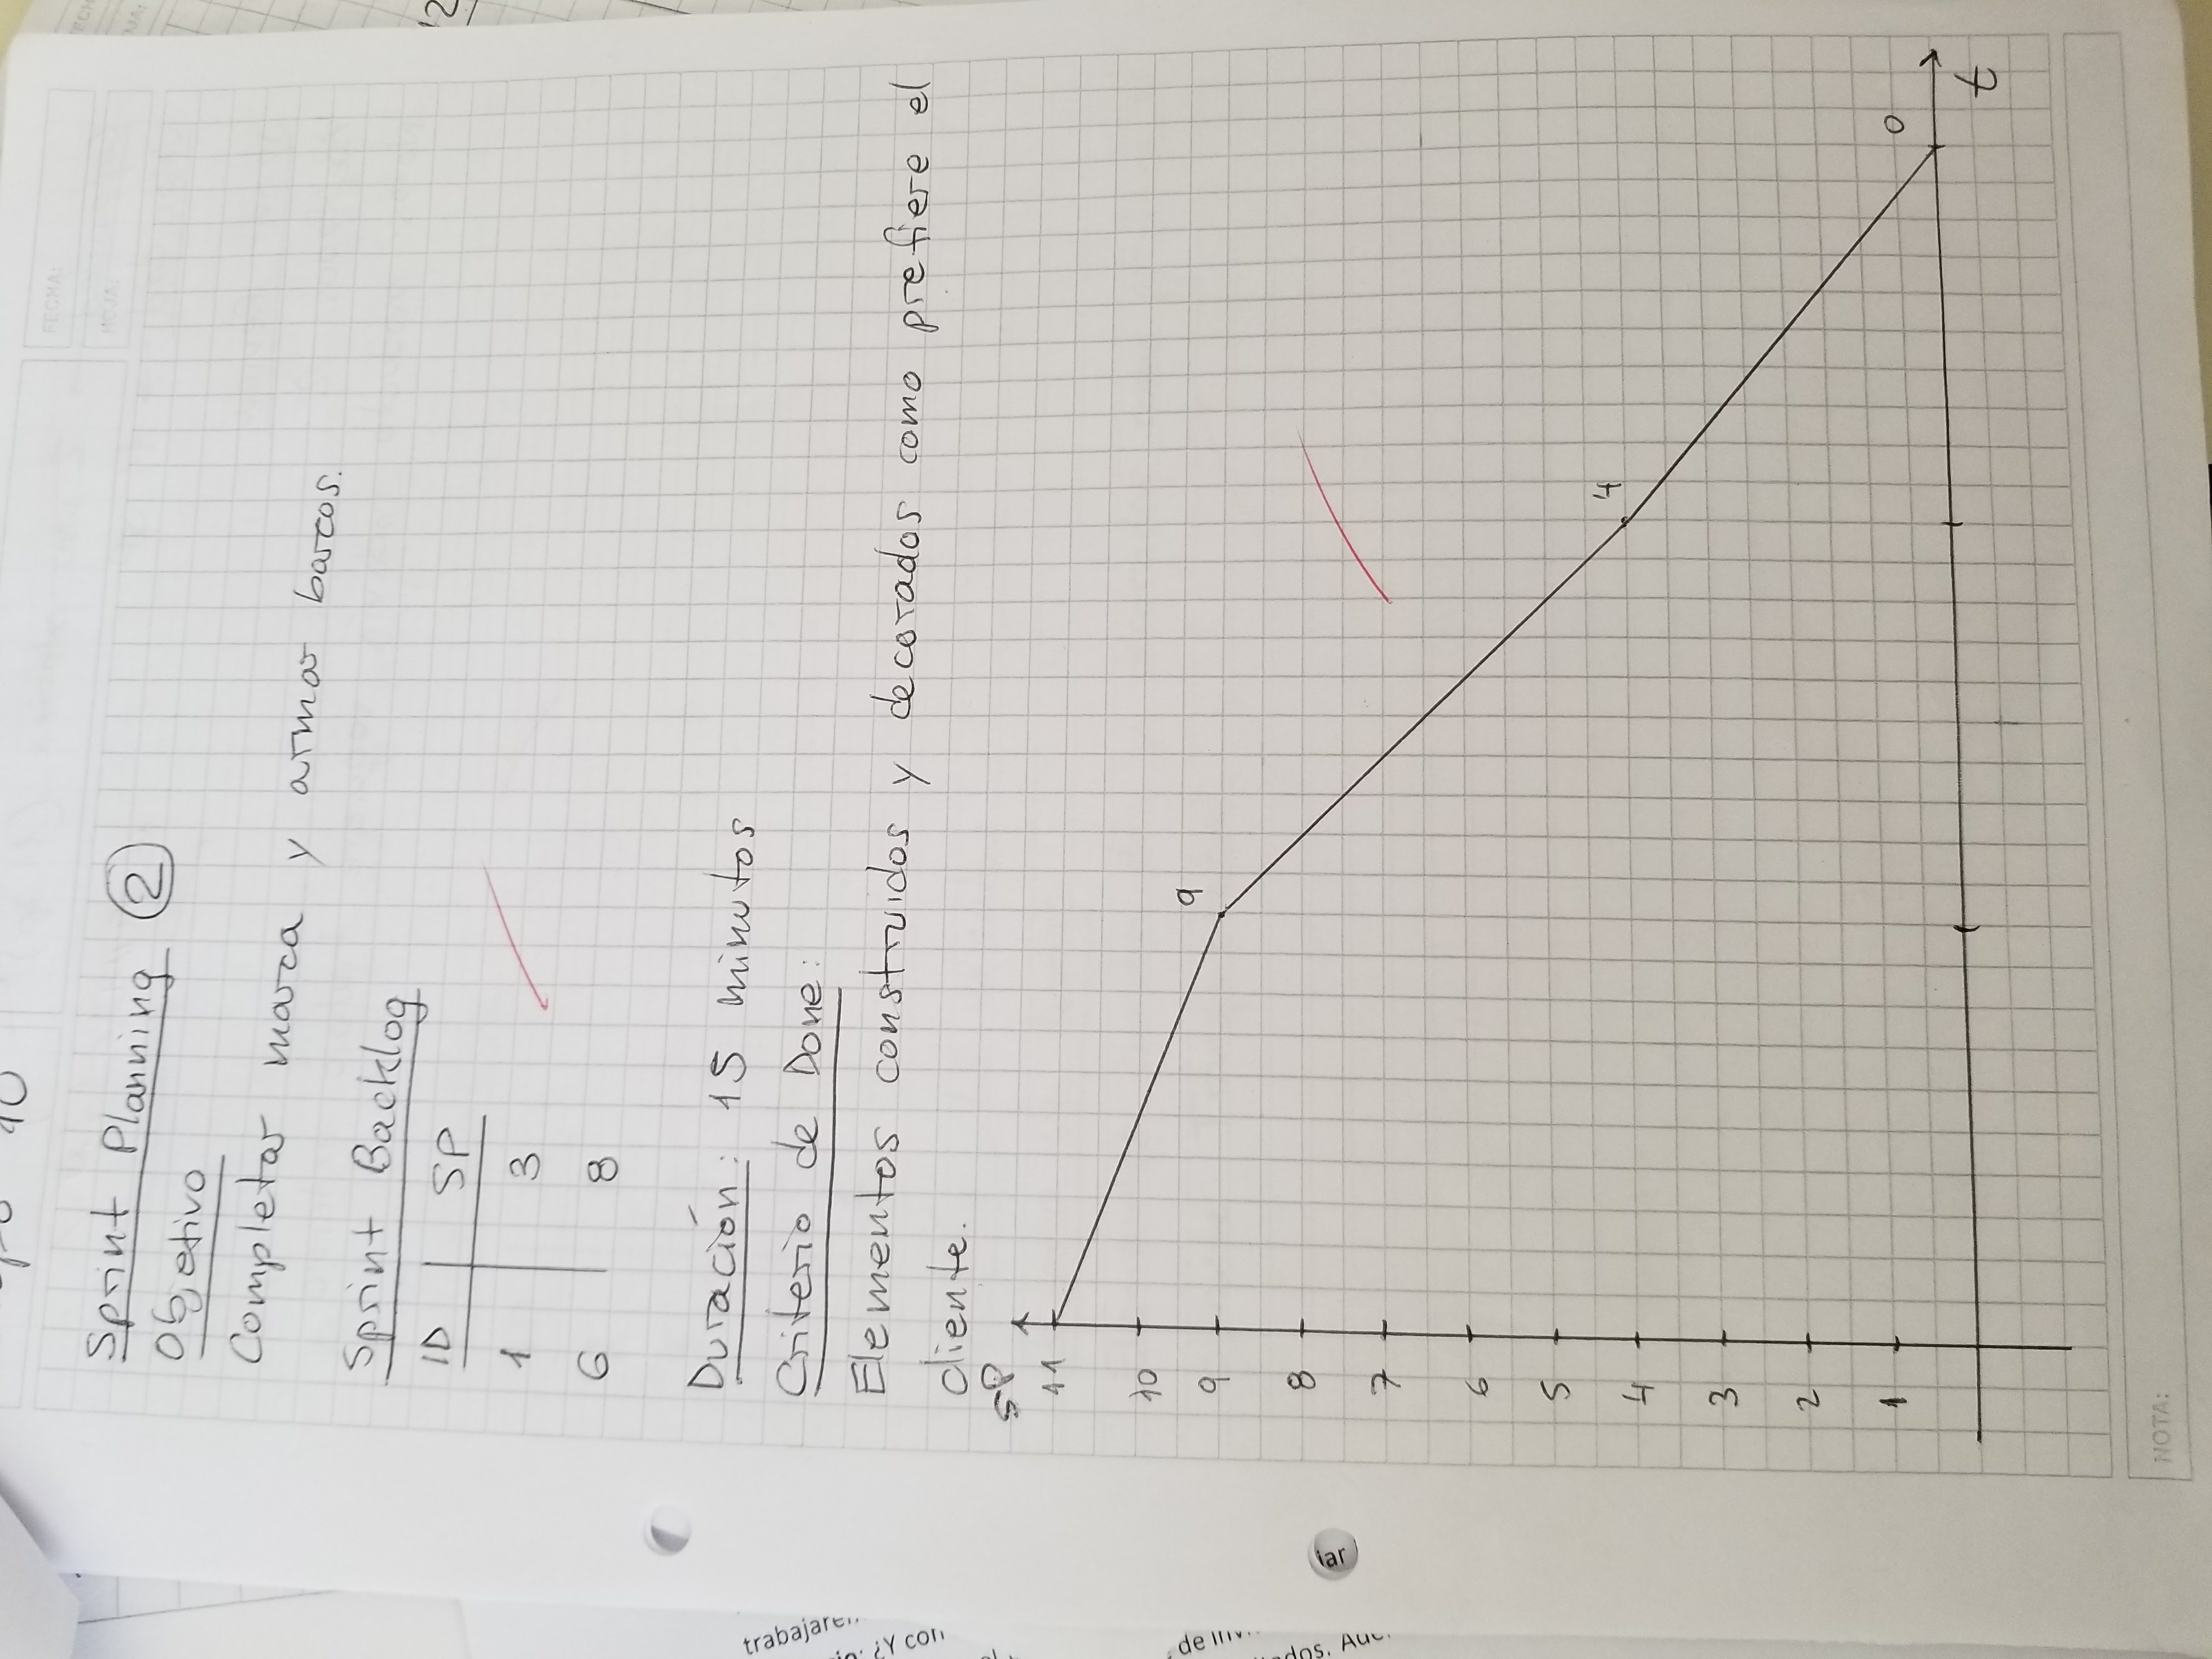 10
FECHA:
HOJA:
Sprint Planning 2
Objetivo
Completar marca y armar barcos.
Sprint Backlog
ID SP
1 3
6 8
Duración: 15 minutos
Criterio de Done:
Elementos construidos y decorados como prefiere el
cliente.
SP
11
10
9
9
8
7
6
5
4
4
3
2
1
0
t
NOTA:
12
¿Y con
lar